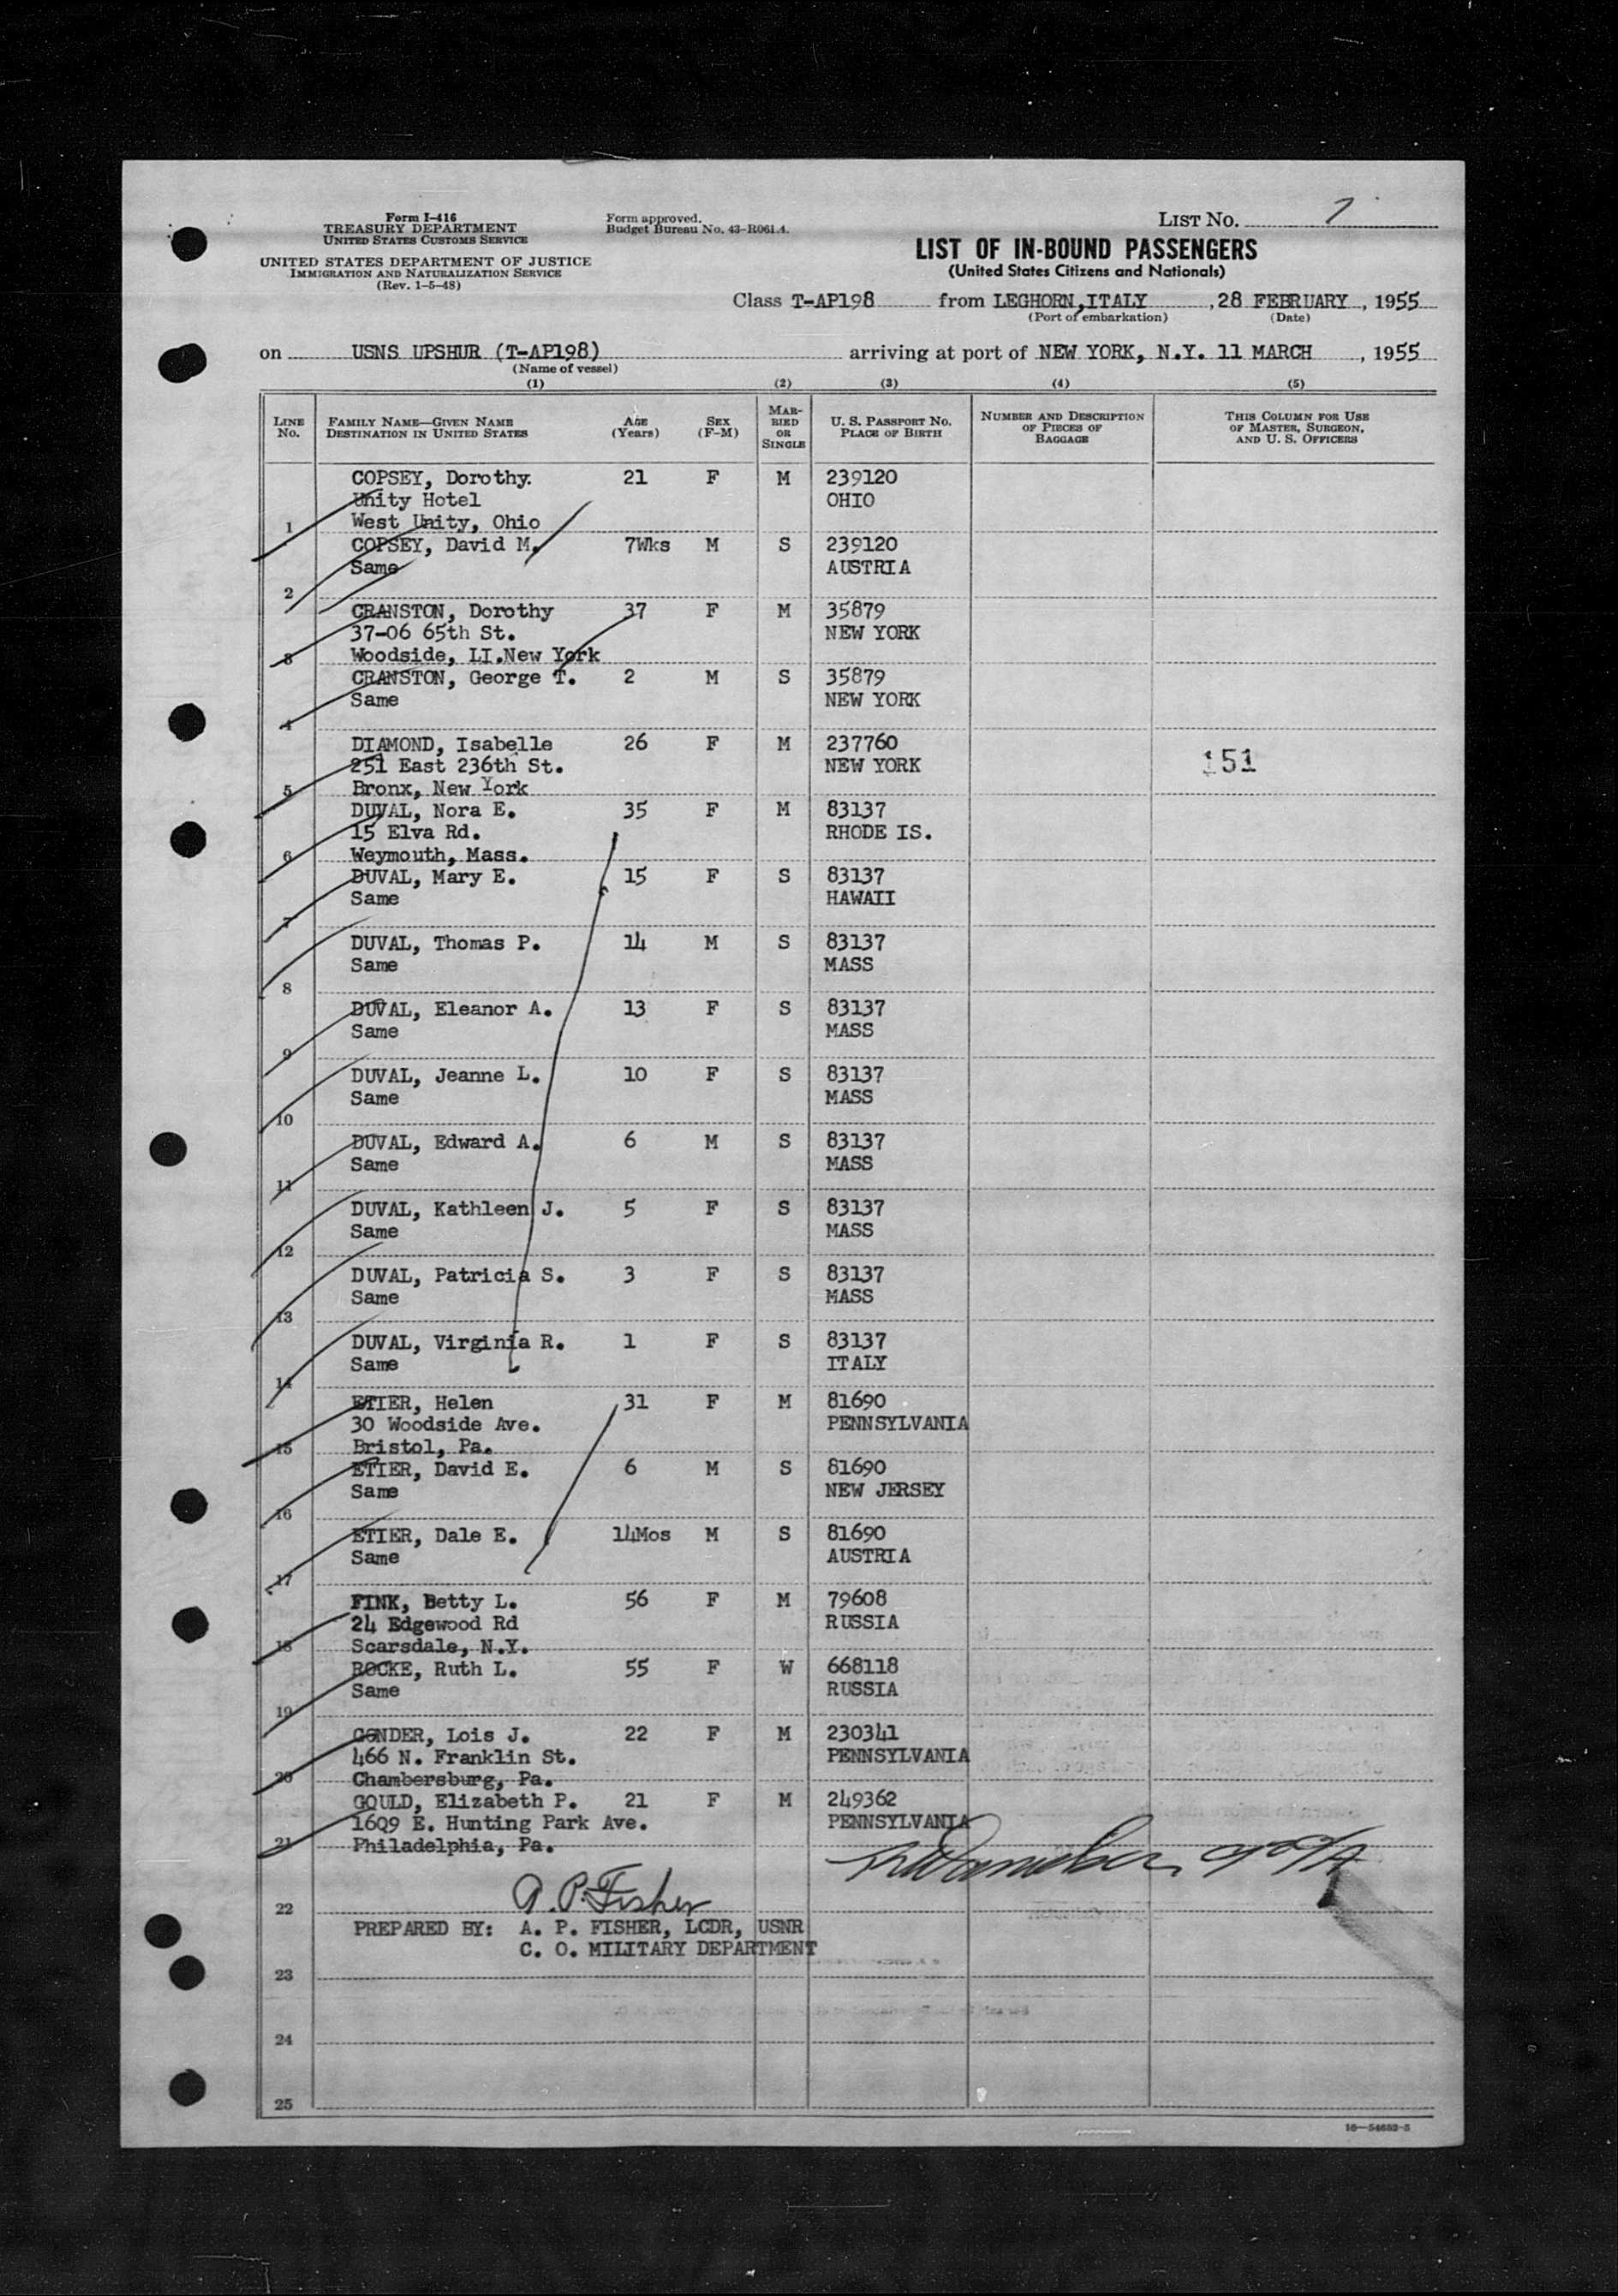 Form I-416
TREASURY DEPARTMENT
UNITED STATES CUSTOMS SERVICE
UNITED STATES DEPARTMENT OF JUSTICE
IMMIGRATION AND NATURALIZATION SERVICE
(Rev. 1-5-48)
Form approved.
Budget Bureau No. 43-R061.4.
LIST No. 7
LIST OF IN-BOUND PASSENGERS
(United States Citizens and Nationals)
Class T-AP198 from LEGHORN, ITALY, 28 FEBRUARY, 1955
(Port of embarkation) (Date)
on USNS UPSHUR (T-AP198) arriving at port of NEW YORK, N.Y. 11 MARCH, 1955
(Name of vessel)
(1) (2) (3) (4) (5)
LINE No. FAMILY NAME—GIVEN NAME DESTINATION IN UNITED STATES AGE (Years) SEX (F-M) MARRIED OR SINGLE U. S. PASSPORT No. PLACE OF BIRTH NUMBER AND DESCRIPTION OF PIECES OF BAGGAGE THIS COLUMN FOR USE OF MASTER, SURGEON, AND U. S. OFFICERS
COPSEY, Dorothy. 21 F M 239120
Unity Hotel OHIO
1 West Unity, Ohio
COPSEY, David M. 7Wks M S 239120
Same AUSTRIA
2
CRANSTON, Dorothy 37 F M 35879
37-06 65th St. NEW YORK
3 Woodside, LI.New York
CRANSTON, George T. 2 M S 35879
Same NEW YORK
4
DIAMOND, Isabelle 26 F M 237760
251 East 236th St. NEW YORK 151
5 Bronx, New York
DUVAL, Nora E. 35 F M 83137
15 Elva Rd. RHODE IS.
6 Weymouth, Mass.
DUVAL, Mary E. 15 F S 83137
Same HAWAII
7
DUVAL, Thomas P. 14 M S 83137
Same MASS
8
DUVAL, Eleanor A. 13 F S 83137
Same MASS
9
DUVAL, Jeanne L. 10 F S 83137
Same MASS
10
DUVAL, Edward A. 6 M S 83137
Same MASS
11
DUVAL, Kathleen J. 5 F S 83137
Same MASS
12
DUVAL, Patricia S. 3 F S 83137
Same MASS
13
DUVAL, Virginia R. 1 F S 83137
Same ITALY
14
ETIER, Helen 31 F M 81690
30 Woodside Ave. PENNSYLVANIA
15 Bristol, Pa.
ETIER, David E. 6 M S 81690
Same NEW JERSEY
16
ETIER, Dale E. 14Mos M S 81690
Same AUSTRIA
17
FINK, Betty L. 56 F M 79608
24 Edgewood Rd RUSSIA
18 Scarsdale, N.Y.
ROCKE, Ruth L. 55 F W 668118
Same RUSSIA
19
GONDER, Lois J. 22 F M 230341
466 N. Franklin St. PENNSYLVANIA
20 Chambersburg, Pa.
GOULD, Elizabeth P. 21 F M 249362
1609 E. Hunting Park Ave. PENNSYLVANIA
21 Philadelphia, Pa.
A. P. Fisher
22
PREPARED BY: A. P. FISHER, LCDR, USNR
C. O. MILITARY DEPARTMENT
23
24
25